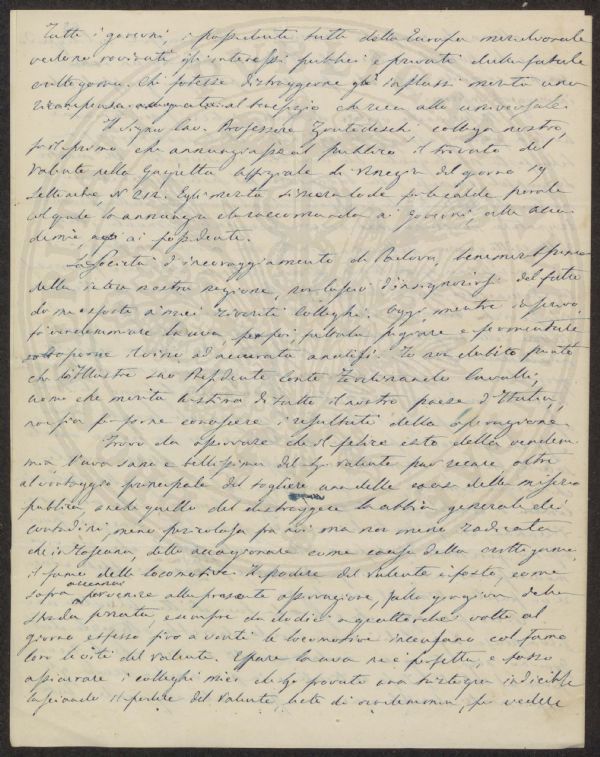 Tutti i governi, i possidenti tutti della Europa meridionale
vedono rovinati gli interessi pubblici e privati dalla fatale
crittogama. Chi potesse distruggerne gli influssi merita una
ricompensa adeguata al benefizio che reca alla universale.
Il Signor Cav. Professore Zantedeschi, collega nostro,
fu il primo che annunziasse al pubblico il trovato del
Valente nella Gazzetta uffiziale di Venezia del giorno 19
Settembre, N 212. Egli merita sincera lode per le calde parole
colle quali lo annunzia e lo raccomanda ai governi, alle Acca-
demie, ai possidenti.
La Società d'incoraggiamento di Padova, benemerita
della intera nostra regione, non lasciò d'insignorirsi del fatto
da me esposto a' miei riveriti Colleghi. Oggi, mentre io scrivo,
fa vendemmiare la uva, per poi, farla pigiare e fermentare
sottoporne il vino ad accurata analisi. Io non dubito punto
che l'Illustre suo Presidente Conte Ferdinando Cavalli,
uomo che merita la stima di tutto il nostro paese d'Italia,
non sia per farne conoscere i resultati della operazione.
Trovo da osservare che il felice esito della vendem-
mia l'uva sana e bellissima del Valente può recare, oltre
al vantaggio principale del togliere una delle cause della miseria
pubblica, anche quello del distruggere la ubbia generale dei
contadini, meno pericolosa fra noi ma non meno radicata
che in Toscana, dello accagionare come causa della crittogama,
il fumo delle locomotive. Il podere del Valente è posto, come
sopra accennai pervenire alla presente operazione, sulla
strada ferrata, e sempre da dodici a quattordici volte al
giorno e spesso fino a venti le locomotive incensano col fumo
loro le viti del Valente. Eppure la uva ne è perfetta, e posso
assicurare i colleghi miei che ho provato una tristezza indicibile
lasciando il podere del Valente, lieto di vendemmia, per vedere